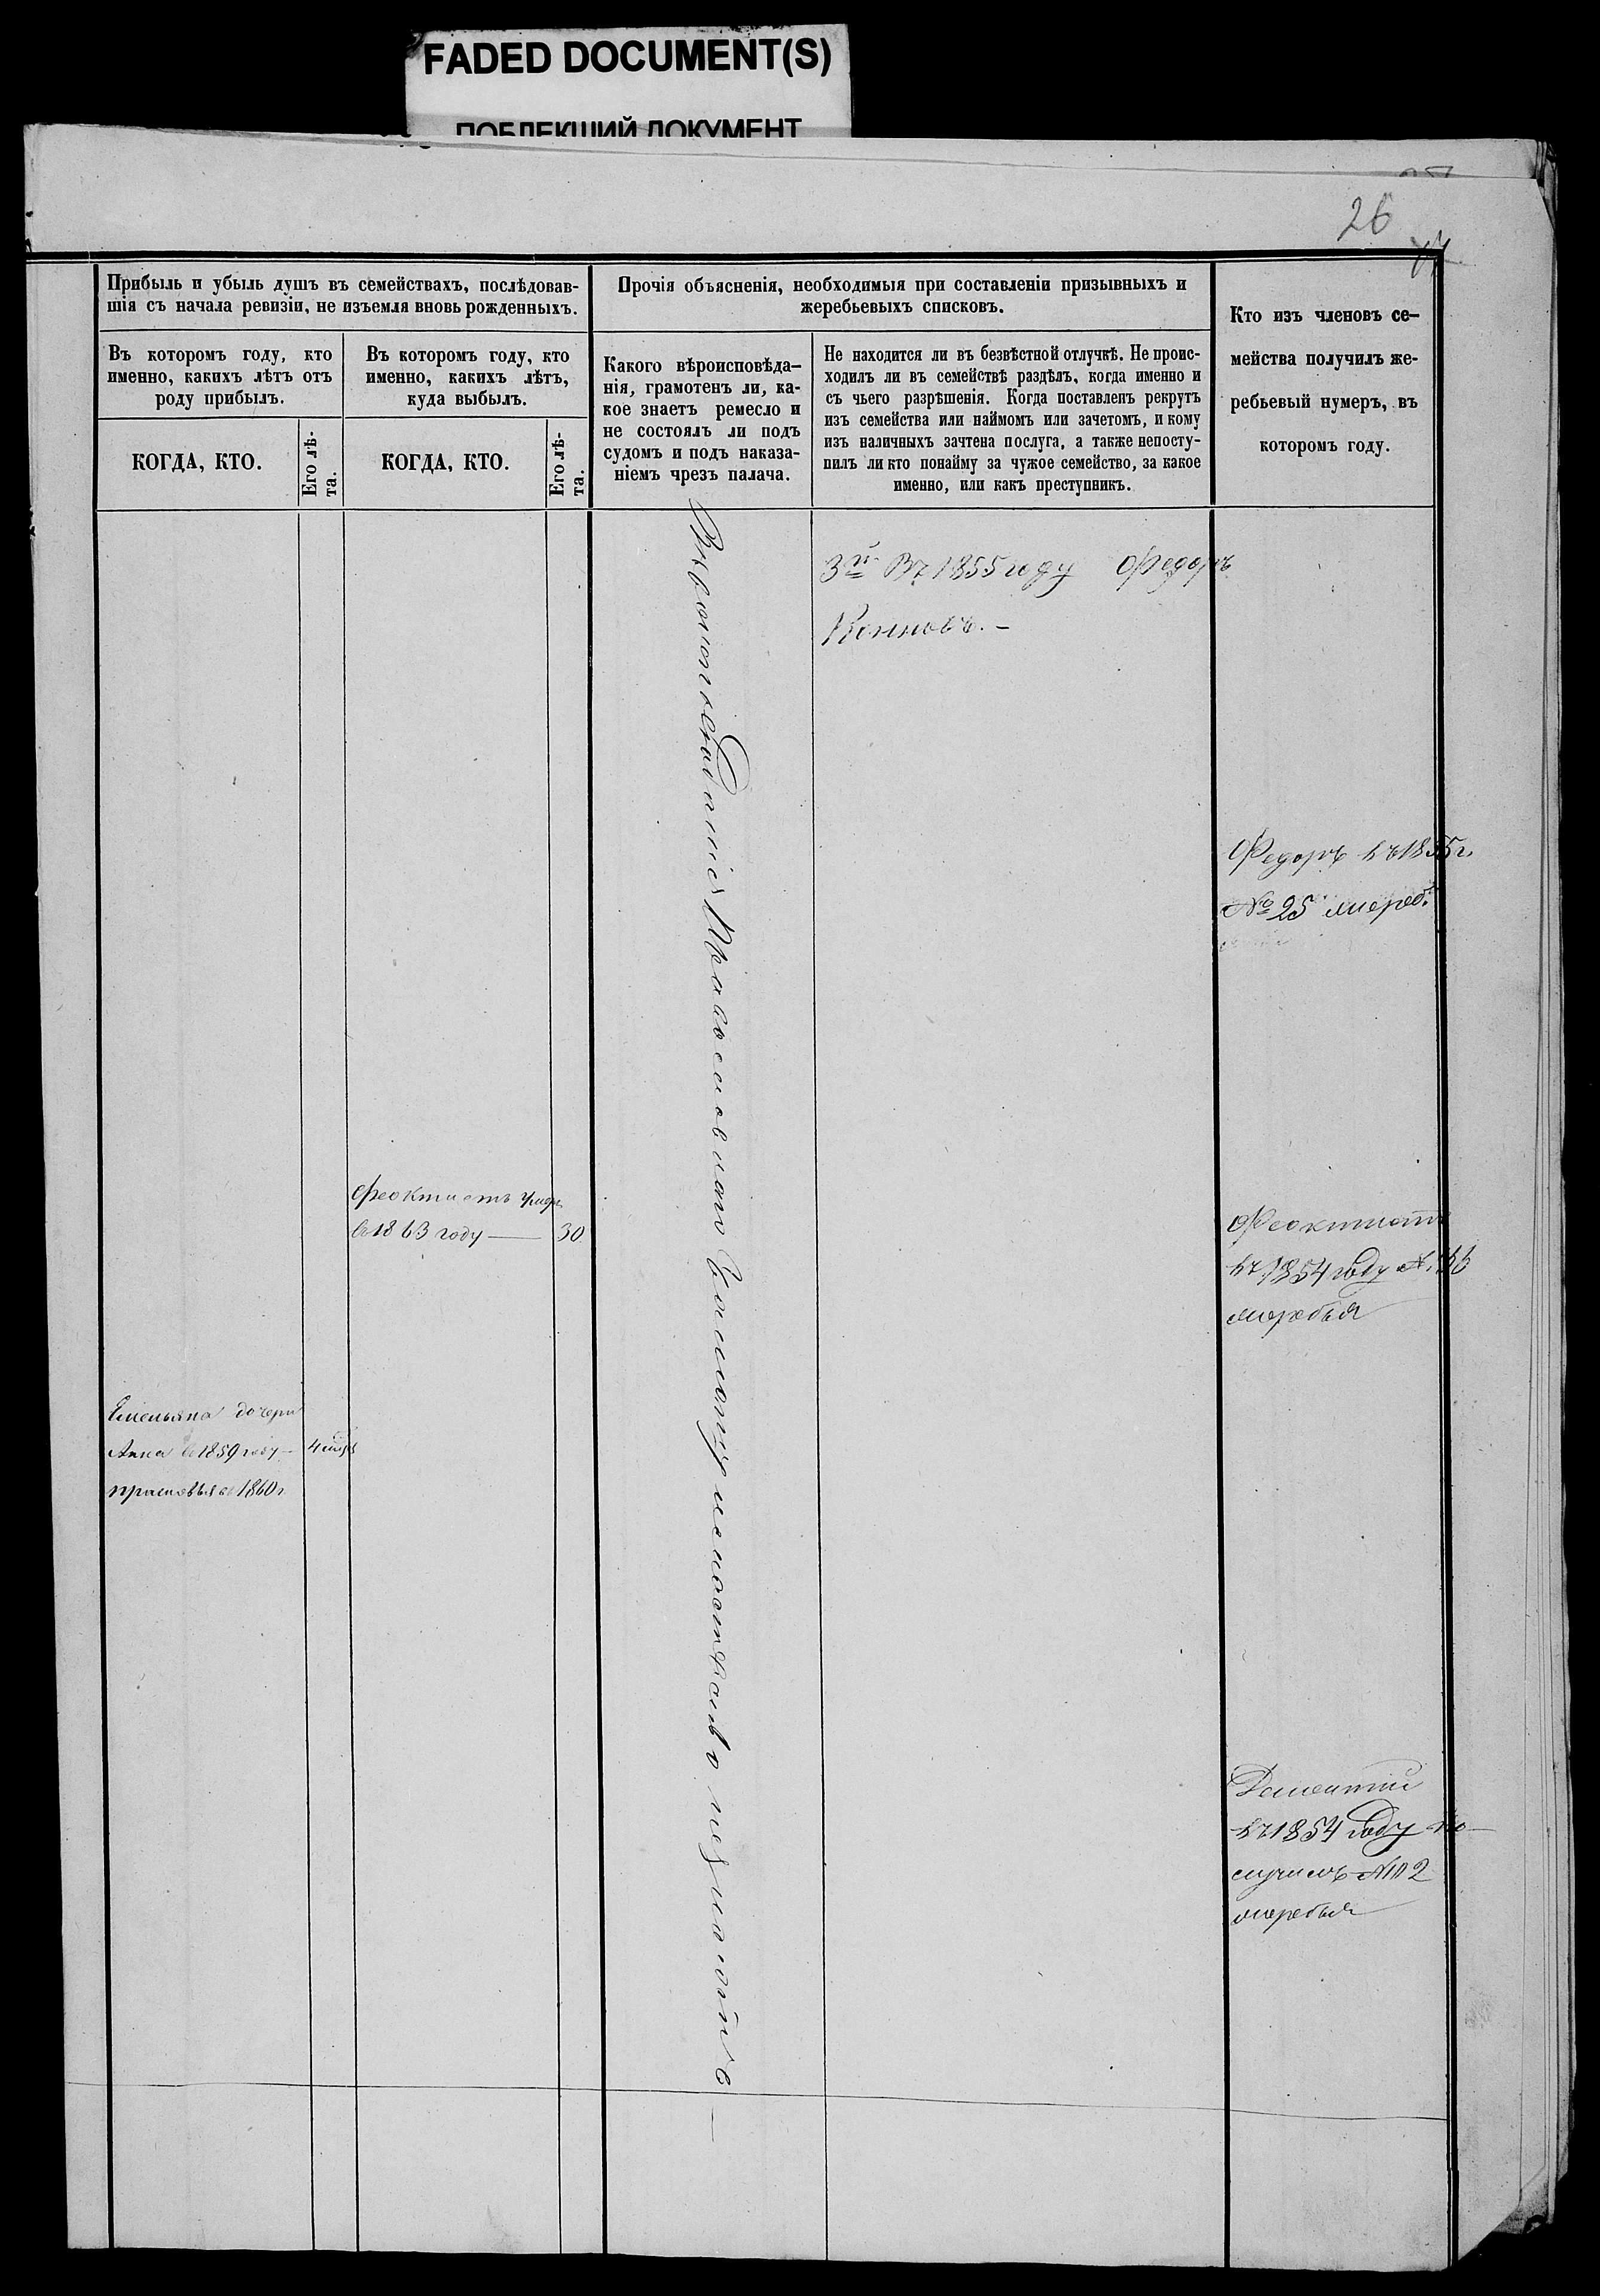 FADED DOCUMENT(S)
ПОБЛЕКШИЙ ДОКУМЕНТ
26
Прибыль и убыль душъ въ семействахъ, послѣдовав-
шія съ начала ревизіи, не изъемля вновь рожденныхъ.
Въ которомъ году, кто
именно, какихъ лѣтъ отъ
роду прибылъ.
КОГДА, КТО.
Его лѣ-
та.
Въ которомъ году, кто
именно, какихъ лѣтъ,
куда выбылъ.
КОГДА, КТО.
Его лѣ-
та.
Прочія объясненія, необходимыя при составленіи призывныхъ и
жеребьевыхъ списковъ.
Какого вѣроисповѣда-
нія, грамотенъ ли, ка-
кое знаетъ ремесло и
не состоялъ ли подъ
судомъ и подъ наказа-
ніемъ чрезъ палача.
Не находится ли въ безвѣстной отлучкѣ. Не проис-
ходилъ ли въ семействѣ раздѣлъ, когда именно и
съ чьего разрѣшенія. Когда поставленъ рекрутъ
изъ семейства или наймомъ или зачетомъ, и кому
изъ наличныхъ зачтена послуга, а также непосту-
пилъ ли кто понайму за чужое семейство, за какое
именно, или какъ преступникъ.
Кто изъ членовъ се-
мейства получилъ же-
ребьевый нумеръ, въ
которомъ году.
Емельяна дочери
Анна в 1859 году
Прасковья в 1860 г
Феоктистъ умеръ
в 1863 году — 30
Вѣроисповѣданія Православнаго
3й Въ 1855 году Федоръ
Федоръ въ 1855 г.
№ 25 жереб.
Феоктистъ
въ 1854 году
жеребья
Дементий
въ 1854 году по
лучилъ № 102
жеребья